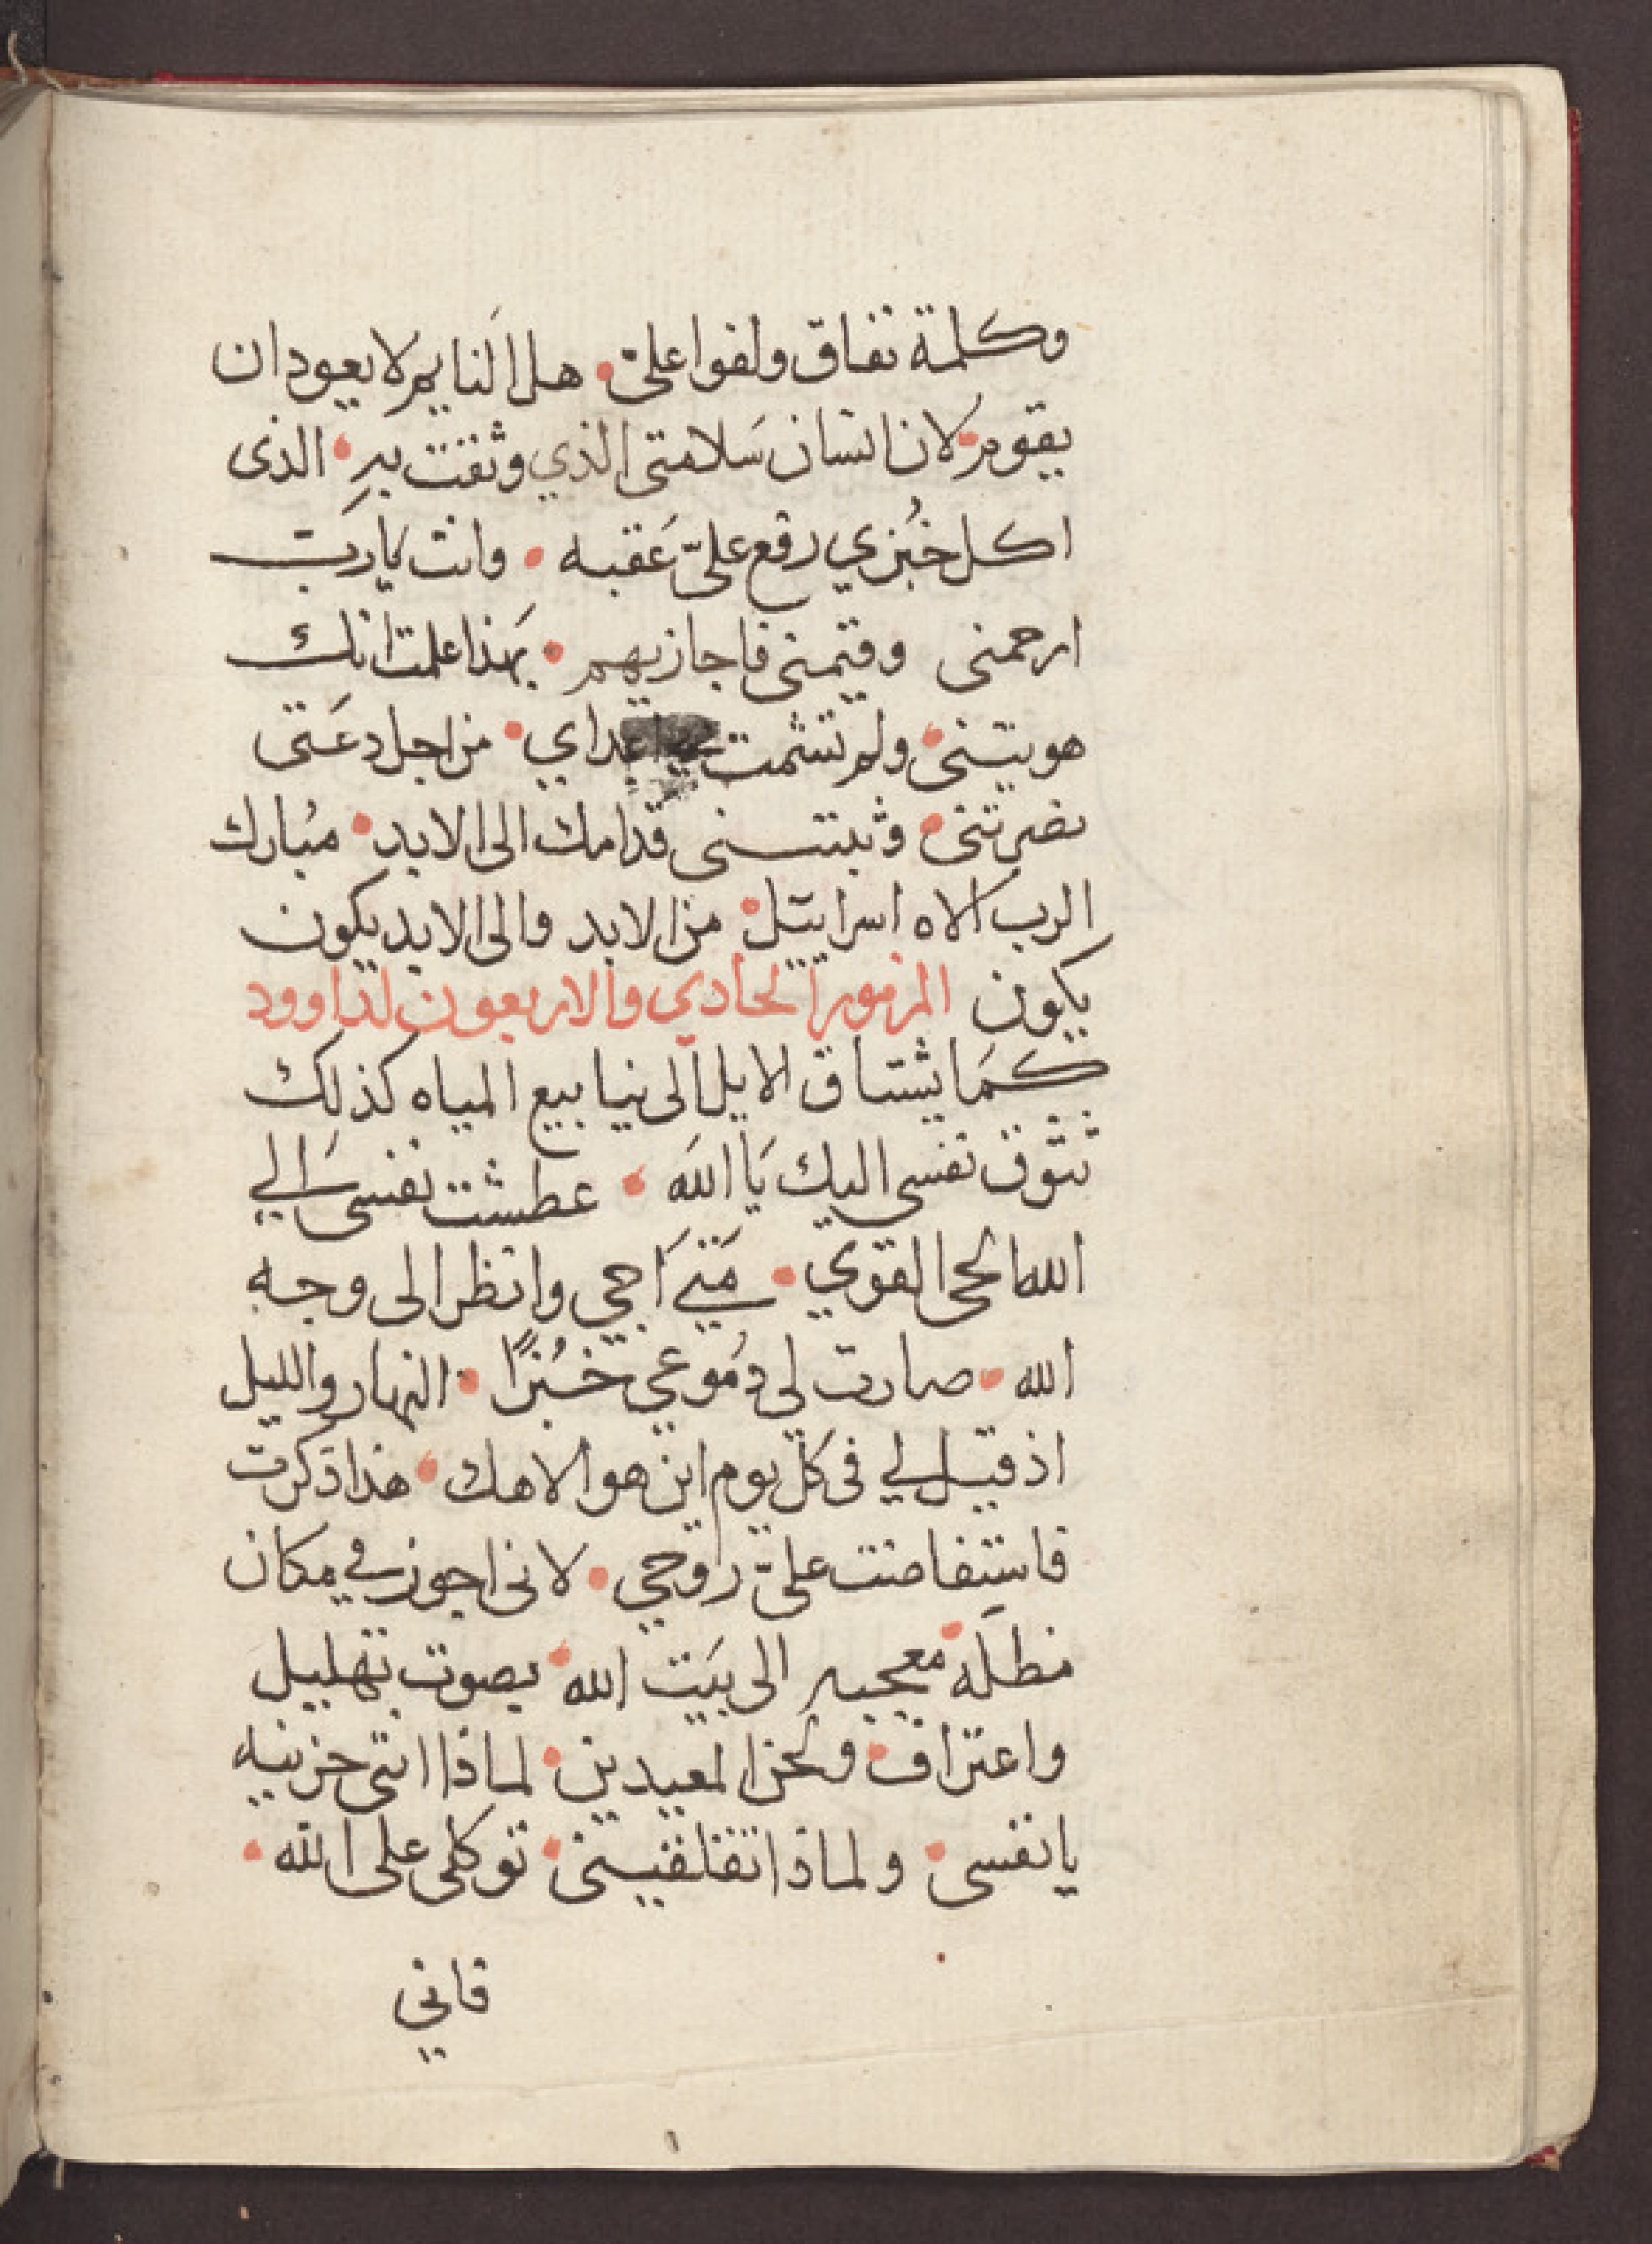 وكلمة نفاق ولفوا علىّ • هل النايم لا يعود ان
يقوم • لان انسان سَلامتى الذي وثقت به • الذى
اكل خبُزي رفع علىّ عَقبه • وانت يَارَبّ
ارحمنى وقيمنى فاجازيهم • بهَذا علمت انك
هويتنى • ولم تشمت بي اعداي • من اجل دعَتى
نصرتنى • وثبتنى قدامك الى الابد • مبُارك
الرب الاه اسراييل • من الابد والى الابد يكون
يكون المزمور الحَادي والاربعون لداوود
كمَا يشتاق الايل الى نيابيع المياه كذلك
تتوق نفسي اليك يَا اللَه • عطشت نفسى الَي
الله الحى القوي • مَتي اَجي وانظر الى وجه
الله • صارت لى دمُوعي خبُزًا • النهار والليل
اذ قيل لي فى كل يوم اين هو الاهك • هذا ذكرت
فاستفاضت علىّ روحي • لانى اجوز في مكان
مظلَه • معجبه الى بيَت الله • بصوت تهليل
واعتراف • ولحن المعيدين • لماذا انتى حزينه
يا نفسى • ولماذا تقلقينى • توكلى على الله •
فاني